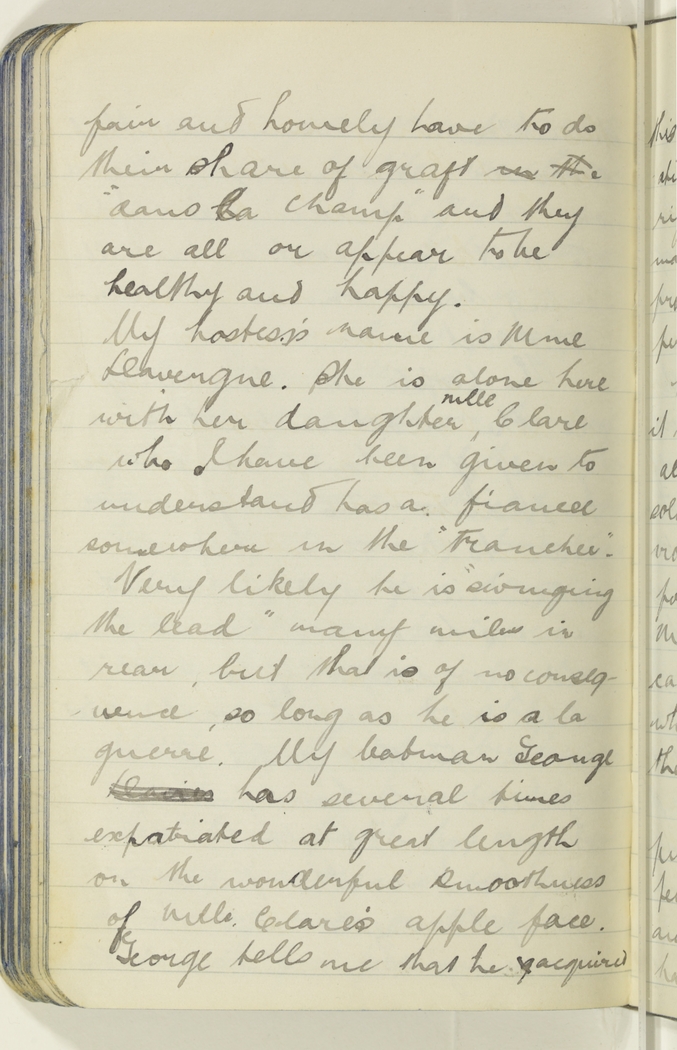 fair and homely have to do
their share of graft in the
"dans la champ" and they
are all or appear to be
healthy and happy.
My hostess's name is Mme
Lavergne. She is alone here
with her daughter, Mlle Clare
who I have been given to
understand has a fiancé
somewhere in the "tranchée".
Very likely he is "swinging
the lead" many miles in
rear, but that is of no conseq-
uence, so long as he is a la
guerre. My batman George
has several times
expatiated at great length
on the wonderful smoothness
of Mlle. Clare's apple face.
George tells me that he acquired